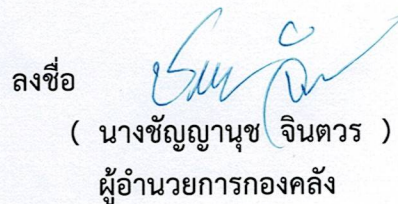 ลงชื่อ
( นางชัญญานุช จินตวร )
ผู้อำนวยการกองคลัง